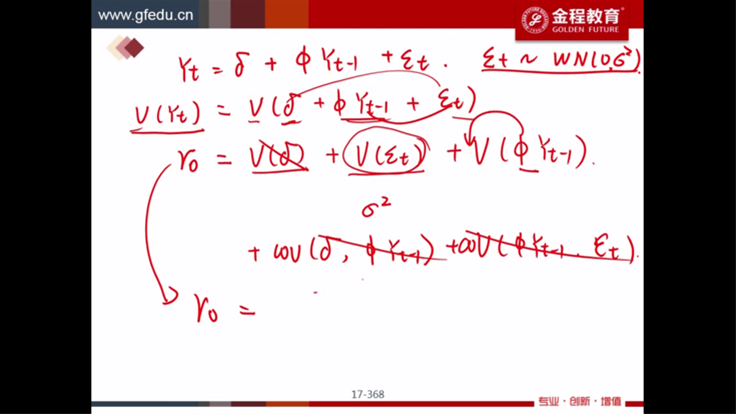 www.gfedu.cn
金程教育
GOLDEN FUTURE
Yt = δ + ϕYt-1 + εt. εt ~ WN(0,σ²)
V(Yt) = V(δ + ϕYt-1 + εt)
r0 = V(δ) + V(εt) + V(ϕYt-1).
σ²
+ cov(δ, ϕYt-1) + cov(ϕYt-1, εt).
r0 =
17-368
专业·创新·增值